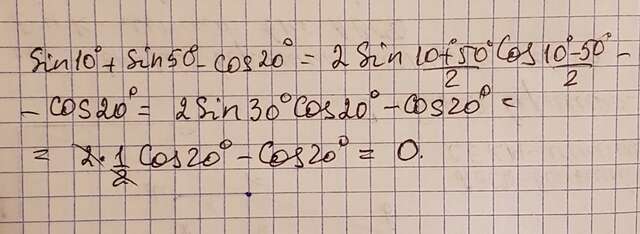 Sin10°+ Sin50°- Cos20° = 2 Sin (10°+50°)/2 Cos (10°-50°)/2 -
- Cos20° = 2Sin30°Cos20° - Cos20° =
= 2·1/2 Cos20° - Cos20° = 0.